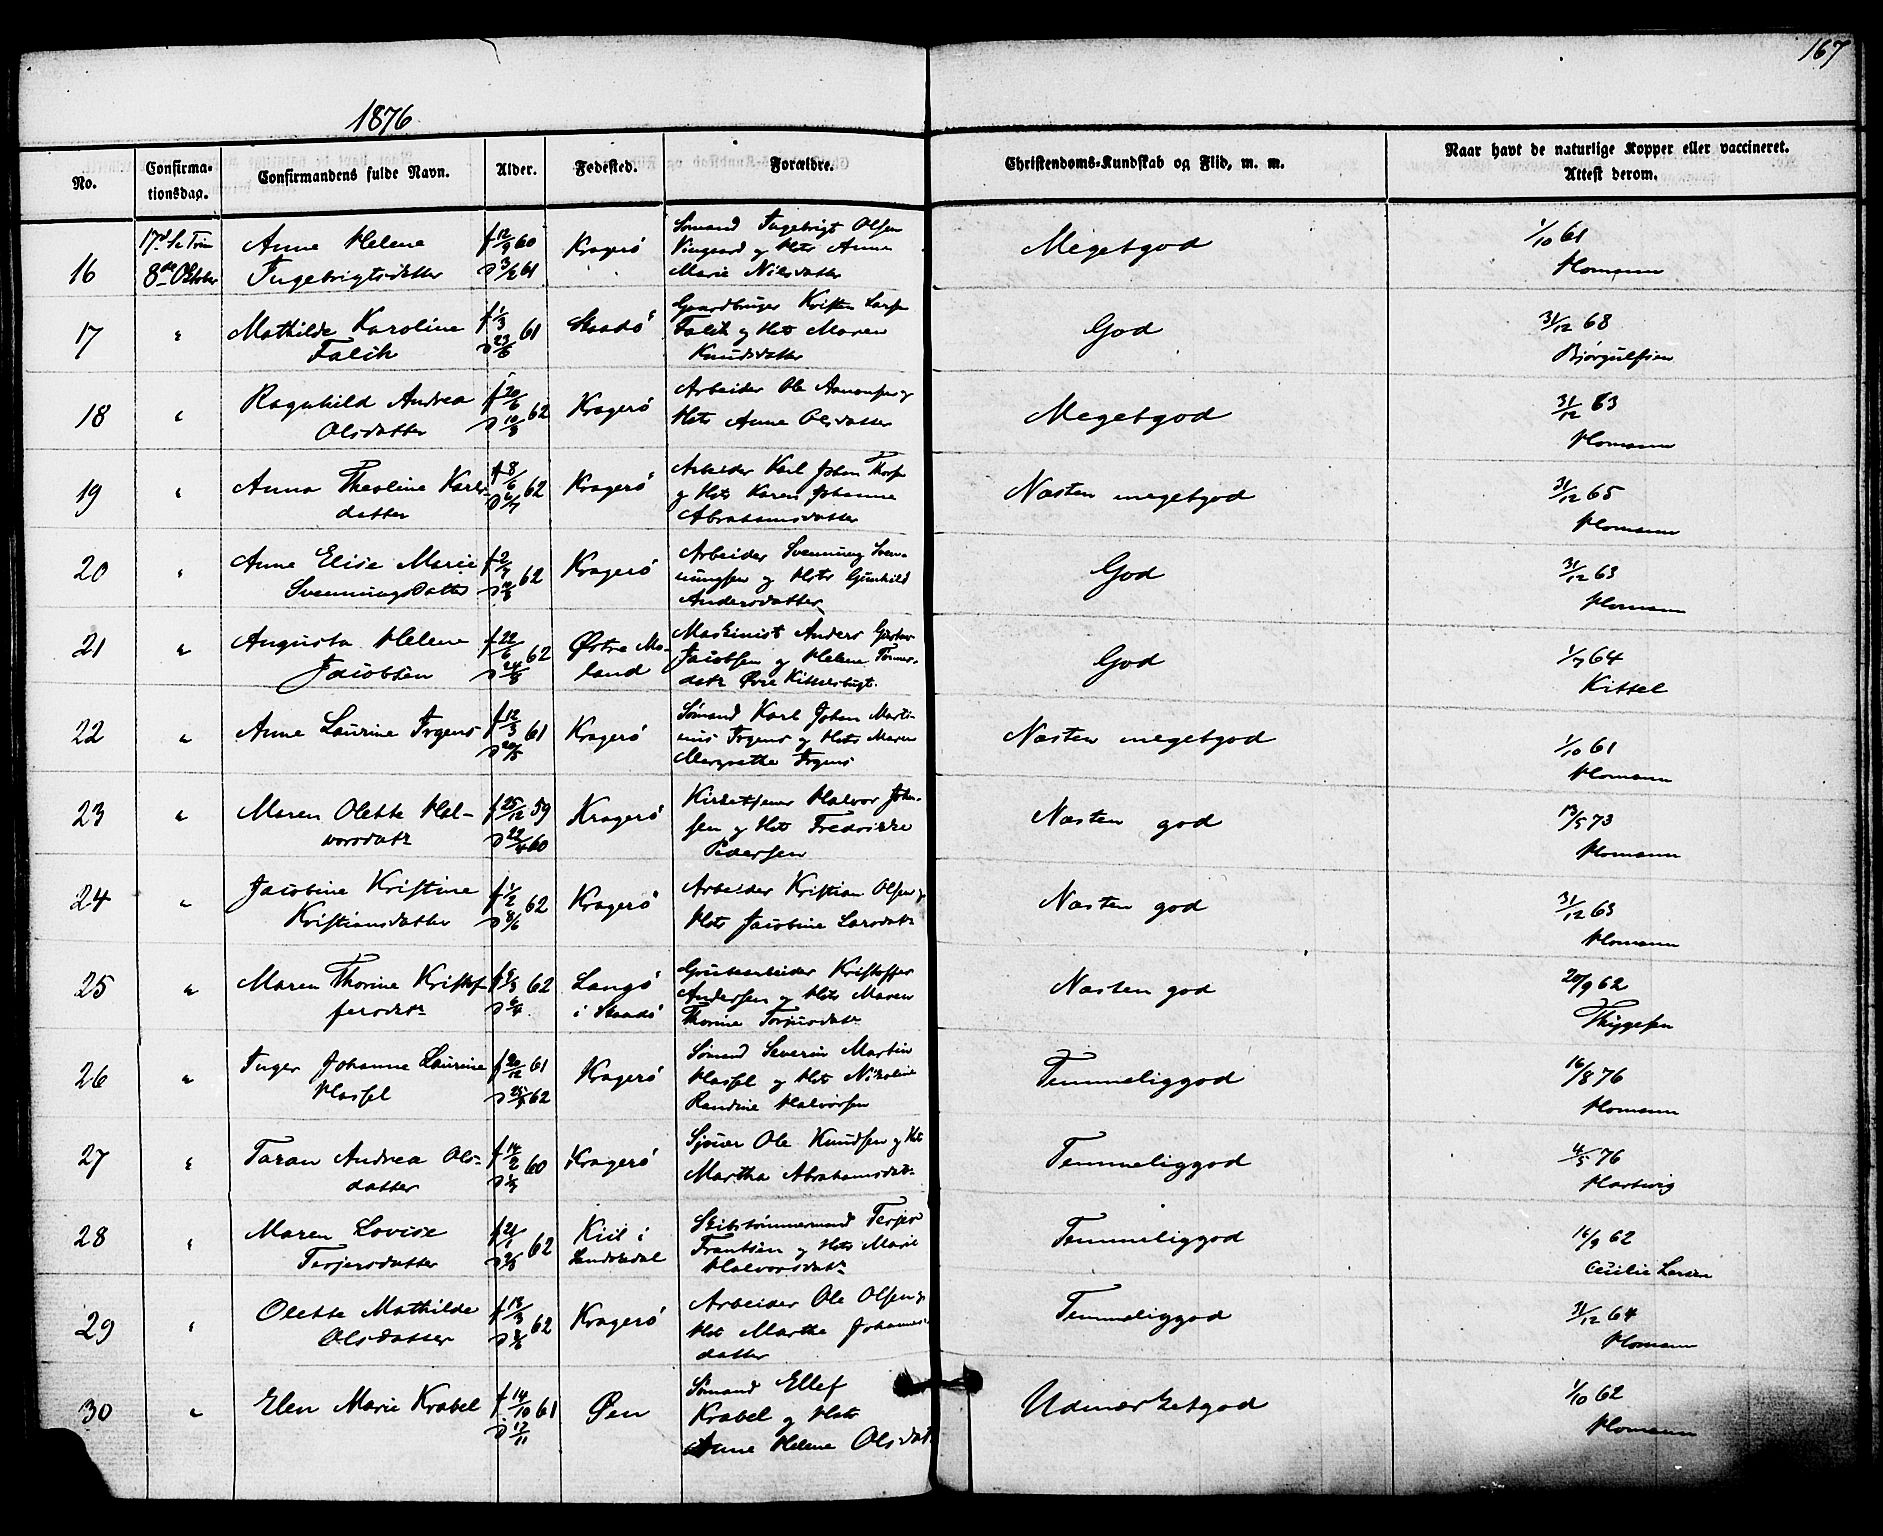 167
1876
No.
Confirmationsdag.
Confirmandens fulde Navn.
Alder.
Fødested.
Forældre.
Christendoms-Kundskab og Flid, m. m.
Naar havt de naturlige Kopper eller vaccineret.
Attest derom.
16
17d S. e Trin
8de Oktober
Anne Helene
Ingebrigtsdatter
f 12/9 60
D 3/2 61
Kragerö
Sömand Ingebrigt Olsen
Viugaard og Hst Anne
Marie Nilsdatter
Megetgod
1/10 61
Homann
17
"
Mathilde Karoline
Falik
f 1/3 61
D 23/6
Skaadö
Gaardbruger Kristen Larss
Falik og Hst Maren
Knudsdatter
God
31/12 68
Bjørgulfsen
18
"
Ragnhild Andrea
Olsdatter
f 20/6 62
D 10/8
Kragerö
Arbeider Ole Aanonsen og
Hst Anne Olsdatter
Megetgod
31/12 63
Homann
19
"
Anna Theoline Karls-
datter
f 8/6 62
D 6/7
Kragerö
Arbeider Karl Johan Thors
og Hst Karen Johanne
Abrahamsdatter
Næsten megetgod
31/12 65
Homann
20
"
Anne Elise Marie
Svenningsdatter
f 2/7 62
Kragerö
Arbeider Svenning Sven-
ningsen og Hst Gunhild
Andersdatter
God
31/12 63
Homann
21
"
Augusta Helene
Jacobsen
f 22/6 62
D 24/8
Østre Mo-
land
Maskinist Anders Gustav
Jacobsen og Helene Tønnes-
datr Øvre Kittelsbugt.
God
1/7 64
Kittel
22
"
Anne Laurine Irgens
f 12/3 61
D 20/5
Kragerö
Sömand Karl Johan Marti-
nius Irgens og Hst Maren
Margrethe Irgens
Næsten megetgod
1/10 61
Homann
23
"
Maren Olette Hal-
vorsdatr
f 25/12 59
D 22/4 60
Kragerö
Kirketjener Halvor Johan-
sen og Hst Fredrikke
Pedersen
Næsten god
13/5 73
Homann
24
"
Jacobine Kristine
Kristiansdatter
f 1/2 62
D 8/6
Kragerö
Arbeider Kristian Olsen og
Hst Jacobine Larsdatr
Næsten god
31/12 63
Homann
25
"
Maren Thorine Kristof-
fersdatr
62
D 6/4
Langö
i Skaadö
Grubearbeider Kristoffer
Andersen og Hst Maren
Thorine Torjusdatr
Næsten god
20/9 62
Thygesen
26
"
Inger Johanne Laurine
Hassel
f 20/12 61
62
Kragerö
Sömand Severin Martin
Hassel og Hst Nikoline
Randine Halvorsen
Temmeliggod
16/8 76
Homann
27
"
Taran Andrea Ols-
datter
f 14/2 60
Kragerö
Sjouer Ole Knudsen og Hst
Martha Abrahamsdatr
Temmeliggod
4/5 76
Hartwig
28
"
Maren Lovise
Terjersdatter
f 21/1 62
Kiil i
Sandekedal
Skibstömmermand Terjer
Frantsen og Hst Marie
Halvorsdatr
Temmeliggod
16/9 62
Cecilie Larsen
29
"
Olette Mathilde
Olsdatter
f 18/3 62
Kragerö
Arbeider Ole Olsen og
Hst Marthe Johannes-
datter
Temmeliggod
31/12 64
Homann
30
"
Elen Marie Krabel
f 14/10 61
D 17/11
Øen
Sömand Ellef
Krabel og Hst
Anne Helene Olsdatr
Udmærketgod
1/10 62
Homann